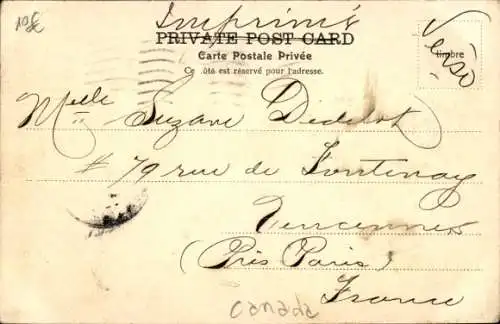 Imprimé
PRIVATE POST CARD
Carte Postale Privée
Ce côté est réservé pour l'adresse.
timbre
Verso
Melle Suzane Didelot
# 79 rue de Fontenay
Vincennes
(Près Paris)
France
Canada